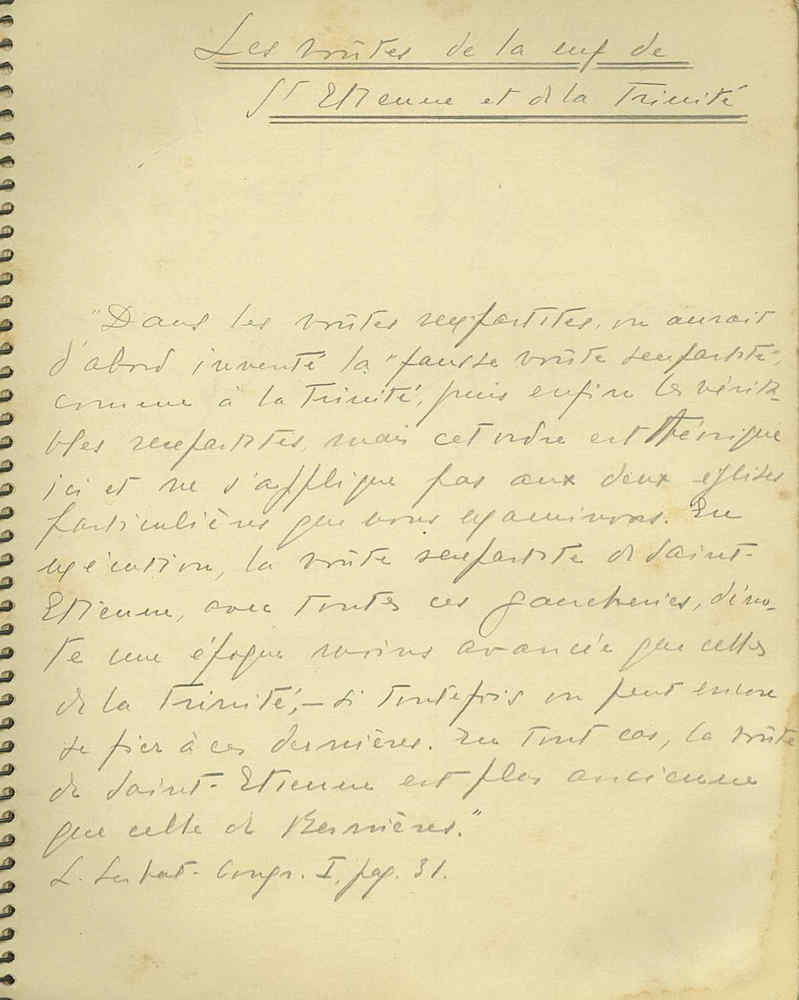 Les voûtes de la nef de
St Etienne et de la Trinité
"Dans les voûtes sexpartites, on aurait
d'abord inventé la "fausse voûte sexpartite",
comme à la Trinité, puis enfin les vérita-
bles sexpartites, mais cet ordre est théorique
ici et ne s'applique pas aux deux églises
particulières que nous examinons. En
exécution, la voûte sexpartite de Saint-
Etienne, avec toutes ces gaucheries, déno-
te une époque moins avancée que celles
de la Trinité, - si toutefois on peut encore
se fier à ces dernières. En tout cas, la voûte
de Saint-Etienne est plus ancienne
que celle de Bernières."
L. Serbat - Congr. I, pag. 31.